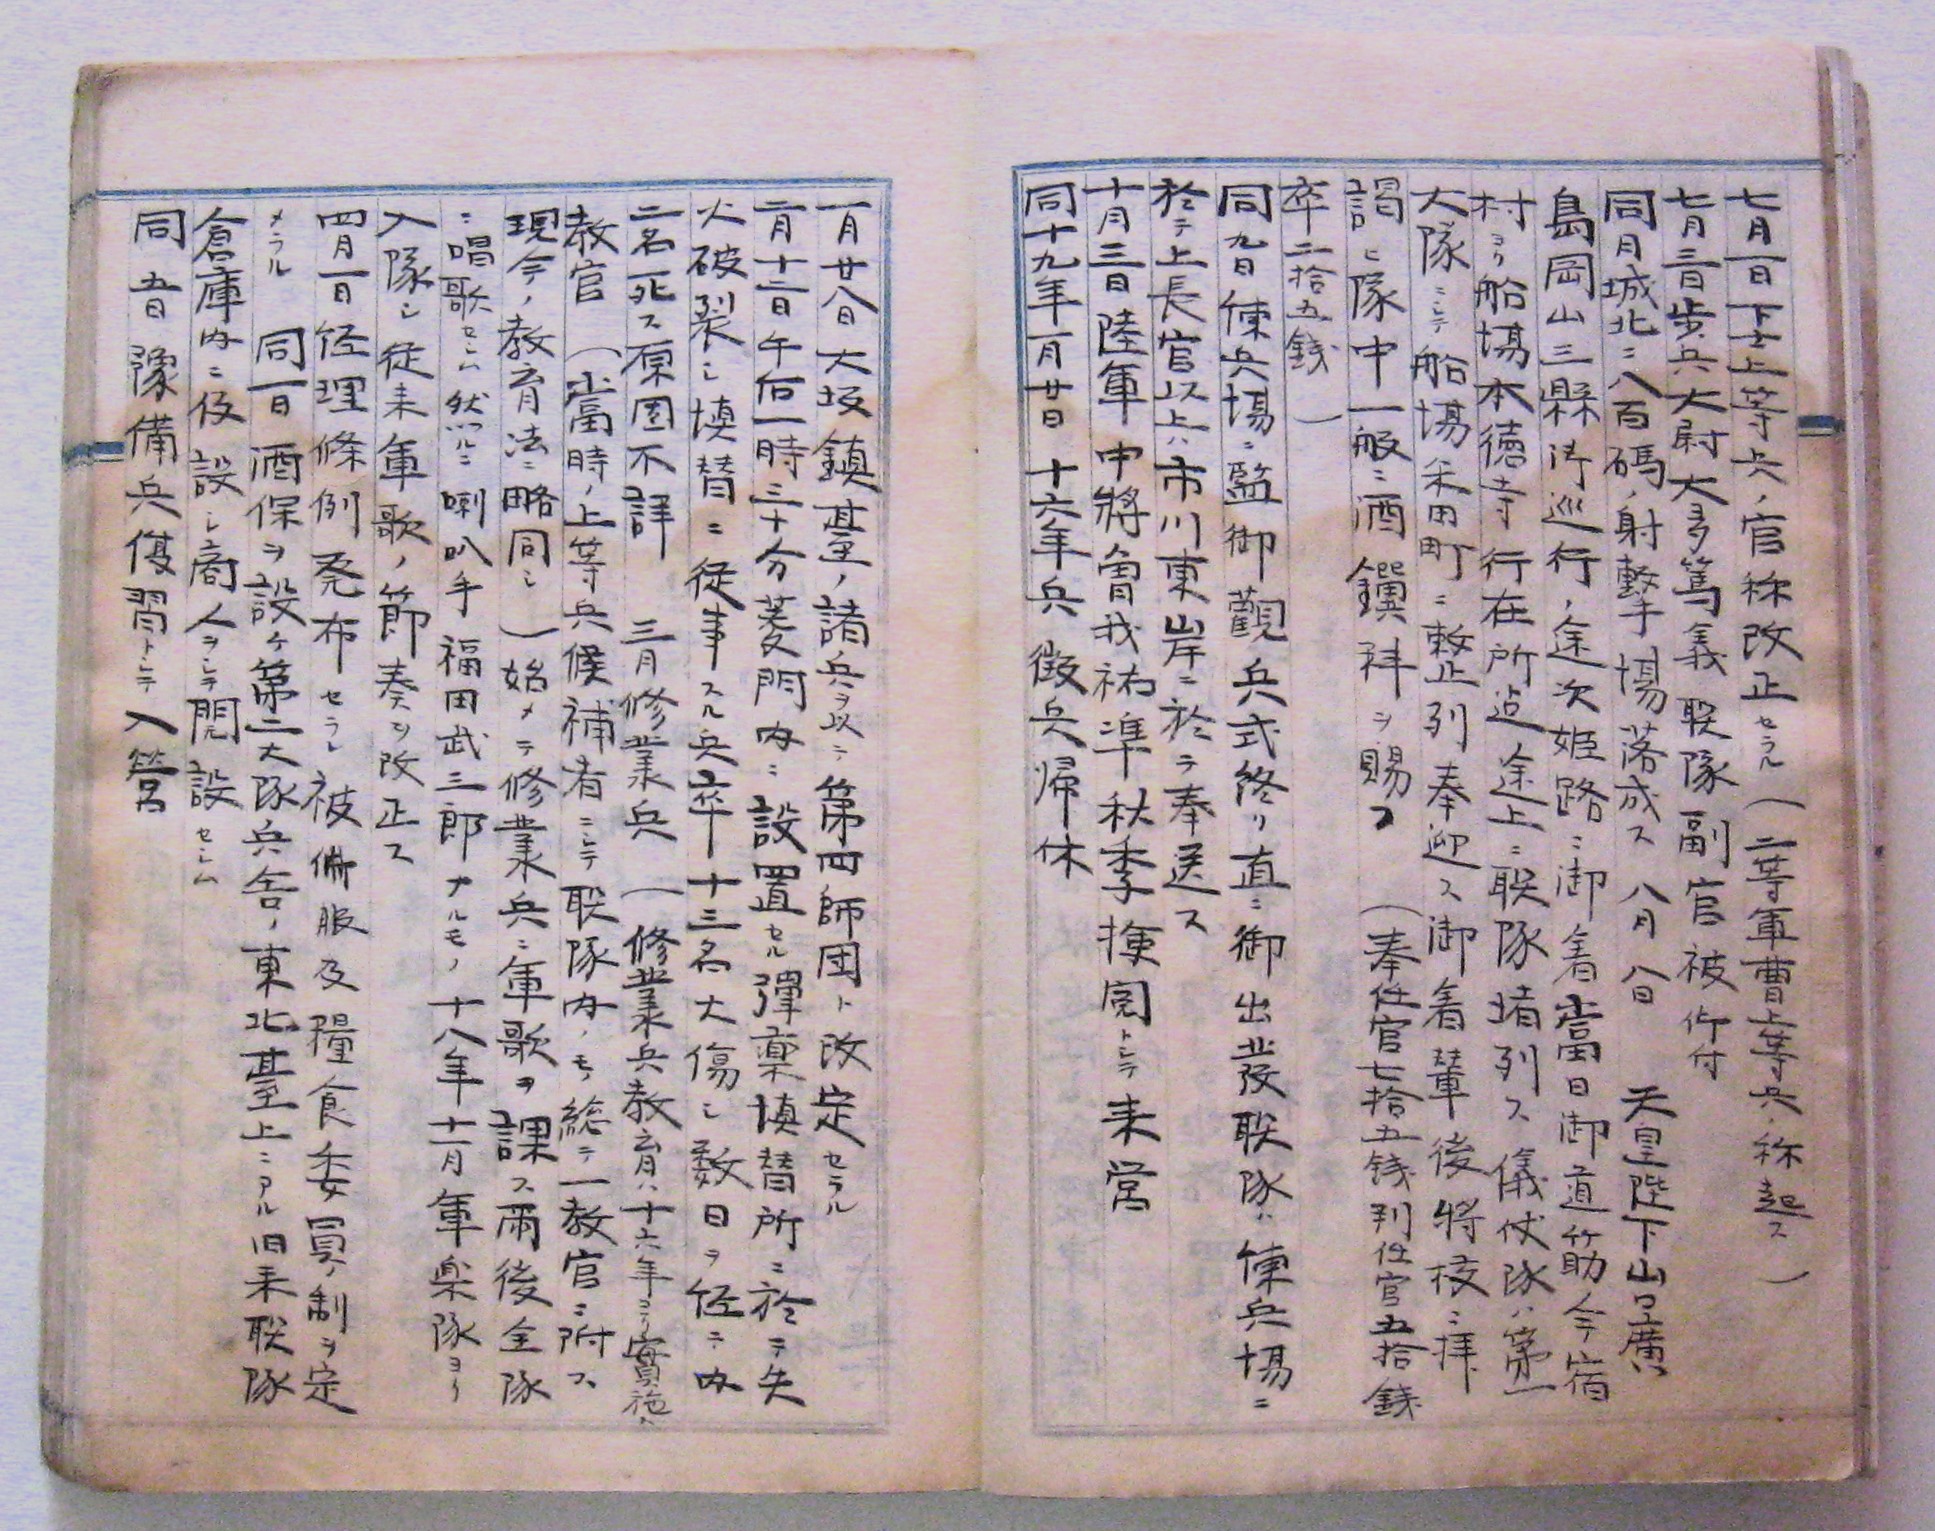 七月一日下士上等兵ノ官称改正セラル(二等軍曹上等兵ノ称起ス)
七月三日歩兵大尉大多篤義聯隊副官被仰付
同月城北ニ八百碼ノ射撃場落成ス 八月八日 天皇陛下山口廣
島岡山三縣御巡行ノ途次姫路ニ御着當日御道筋今宿
村ヨリ船場本徳寺行在所迠途上ニ聯隊堵列ス儀仗隊ハ第一
大隊ニシテ船場米田町ニ整止列奉迎ス御着輦後將校ニ拝
謁ヒ隊中一般ニ酒饌料ヲ賜フ (奉任官七拾五銭判任官五拾銭
卒二拾五銭)
同九日練兵場ニ監御觀兵式終リ直ニ御出發聯隊ハ練兵場ニ
於テ上長官以上ハ市川東岸ニ於テ奉送ス
十月三日陸軍中將曽我祐準秋季検閲トシテ来営
同十九年一月廿日十六年兵徴兵帰休
一月廿八日大坂鎮䑓ノ諸兵ヲ以テ第四師団ト改定セラル
二月十二日午后一時三十分菱門内ニ設置セル彈薬填替所ニ於テ失
火破裂シ填替ニ従事スル兵卒十三名大傷シ数日ヲ経ニ内
二名死ス原因不詳 三月修業兵(修業兵教育ハ十六年ヨリ實施ス
教官(當時ノ上等兵候補者ニシテ聯隊内ノモノ総テ一教官ニ附ス
現今ノ教育法ニ略同シ)始メテ修業兵ニ軍歌ヲ課ス爾後全隊
ニ唱歌セシム然ルニ喇叭手福田武三郎ナルモノ十八年十二月軍楽隊ヨリ
入隊シ従来軍歌ノ節奏ヲ改正ス
四月一日経理條例発布セラレ被服及糧食委員ノ制ヲ定
メラル 同一日酒保ヲ設ケ第二大隊兵舎ノ東北䑓上ニアル旧来聯隊
倉庫内ニ仮設シ商人ヲシテ開設セシム
同五日豫備兵復習トシテ入営